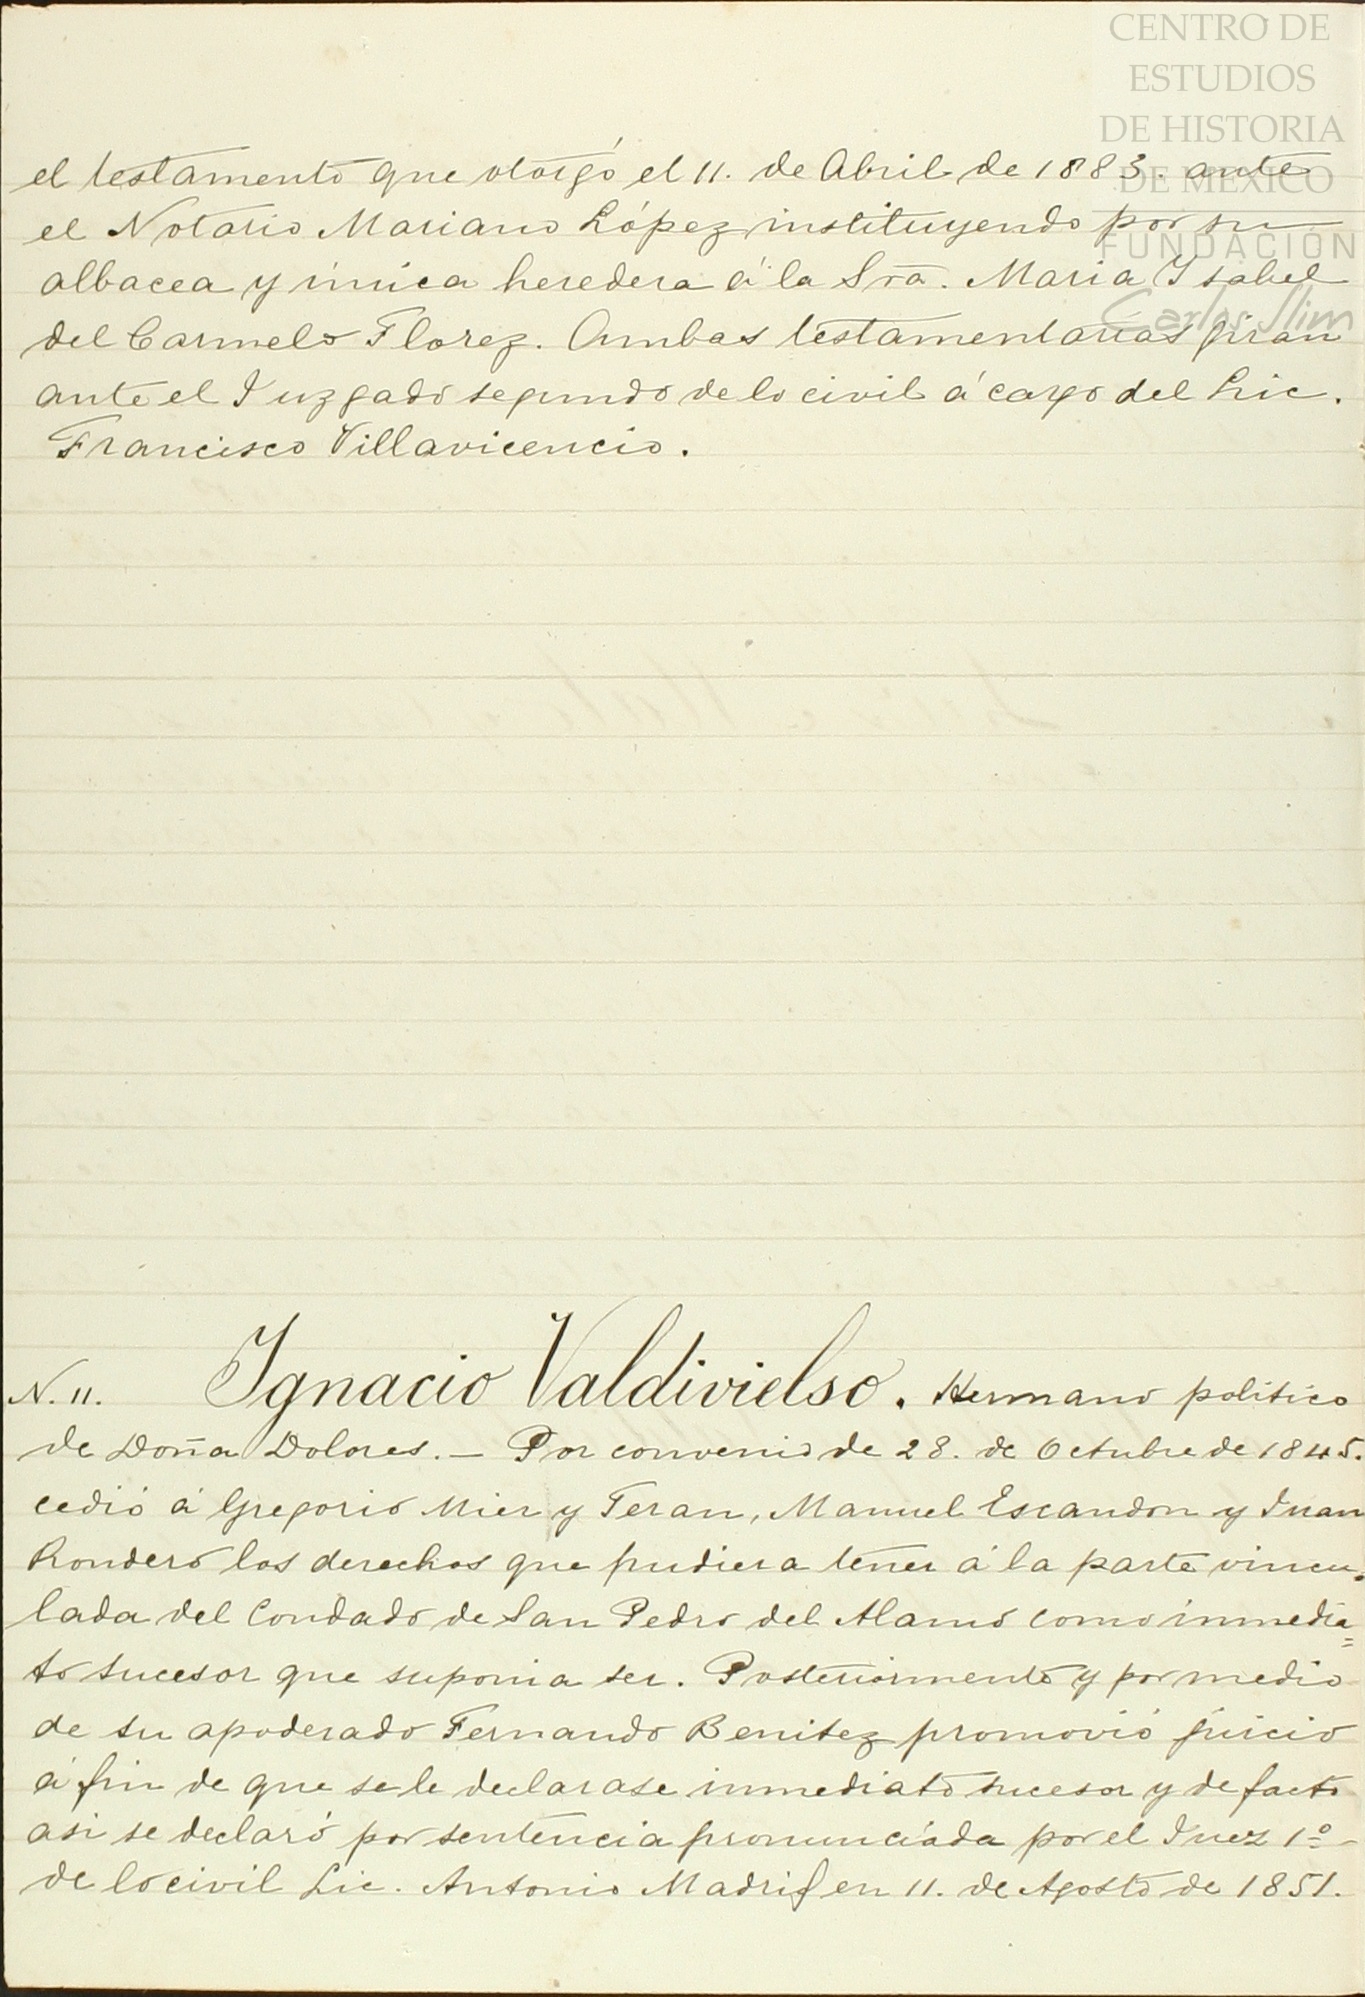 CENTRO DE
ESTUDIOS
DE HISTORIA
DE MÉXICO
FUNDACIÓN
Carlos Slim
el testamento que otorgó el 11. de Abril de 1883. ante
el Notario Mariano López instituyendo por su
albacea y única heredera á la Sra. Maria Ysabel
del Carmelo Florez. Ambas testamentarias jiran
ante el Juzgado segundo de lo civil á cargo del Lic.
Francisco Villavicencio.
N. 11. Ignacio Valdivielso. Hermano politico
de Doña Dolores. — Por convenio de 28. de Octubre de 1845.
cedió á Gregorio Mier y Teran, Manuel Escandon y Juan
Rondero los derechos que pudiera tener á la parte vincu-
lada del Condado de San Pedro del Alamo como inmedia=
to sucesor que suponia ser. Posteriormente y por medio
de su apoderado Fernando Benitez promovió juicio
á fin de que se le declarase inmediato sucesor y de facto
asi se declaró por sentencia pronunciada por el Juez 1º
de lo civil Lic. Antonio Madrid en 11. de Agosto de 1851.